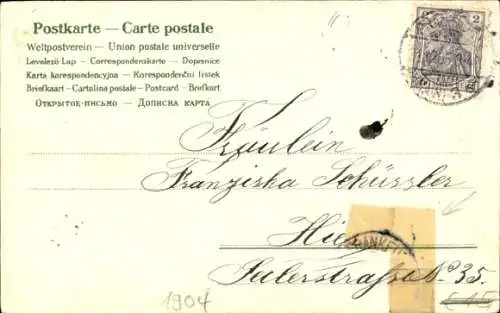 Postkarte — Carte postale
Weltpostverein — Union postale universelle
Levelező Lap — Correspondenskarte — Dopisnice
Karta korespondencyjna — Korespondenční listek
Briefkaart — Cartolina postale — Postcard — Brefkort
Открытое-письмо — Дописна карта
2
Fräulein
Franziska Schüssler
Hier
Seilerstrasse No. 35.
1904